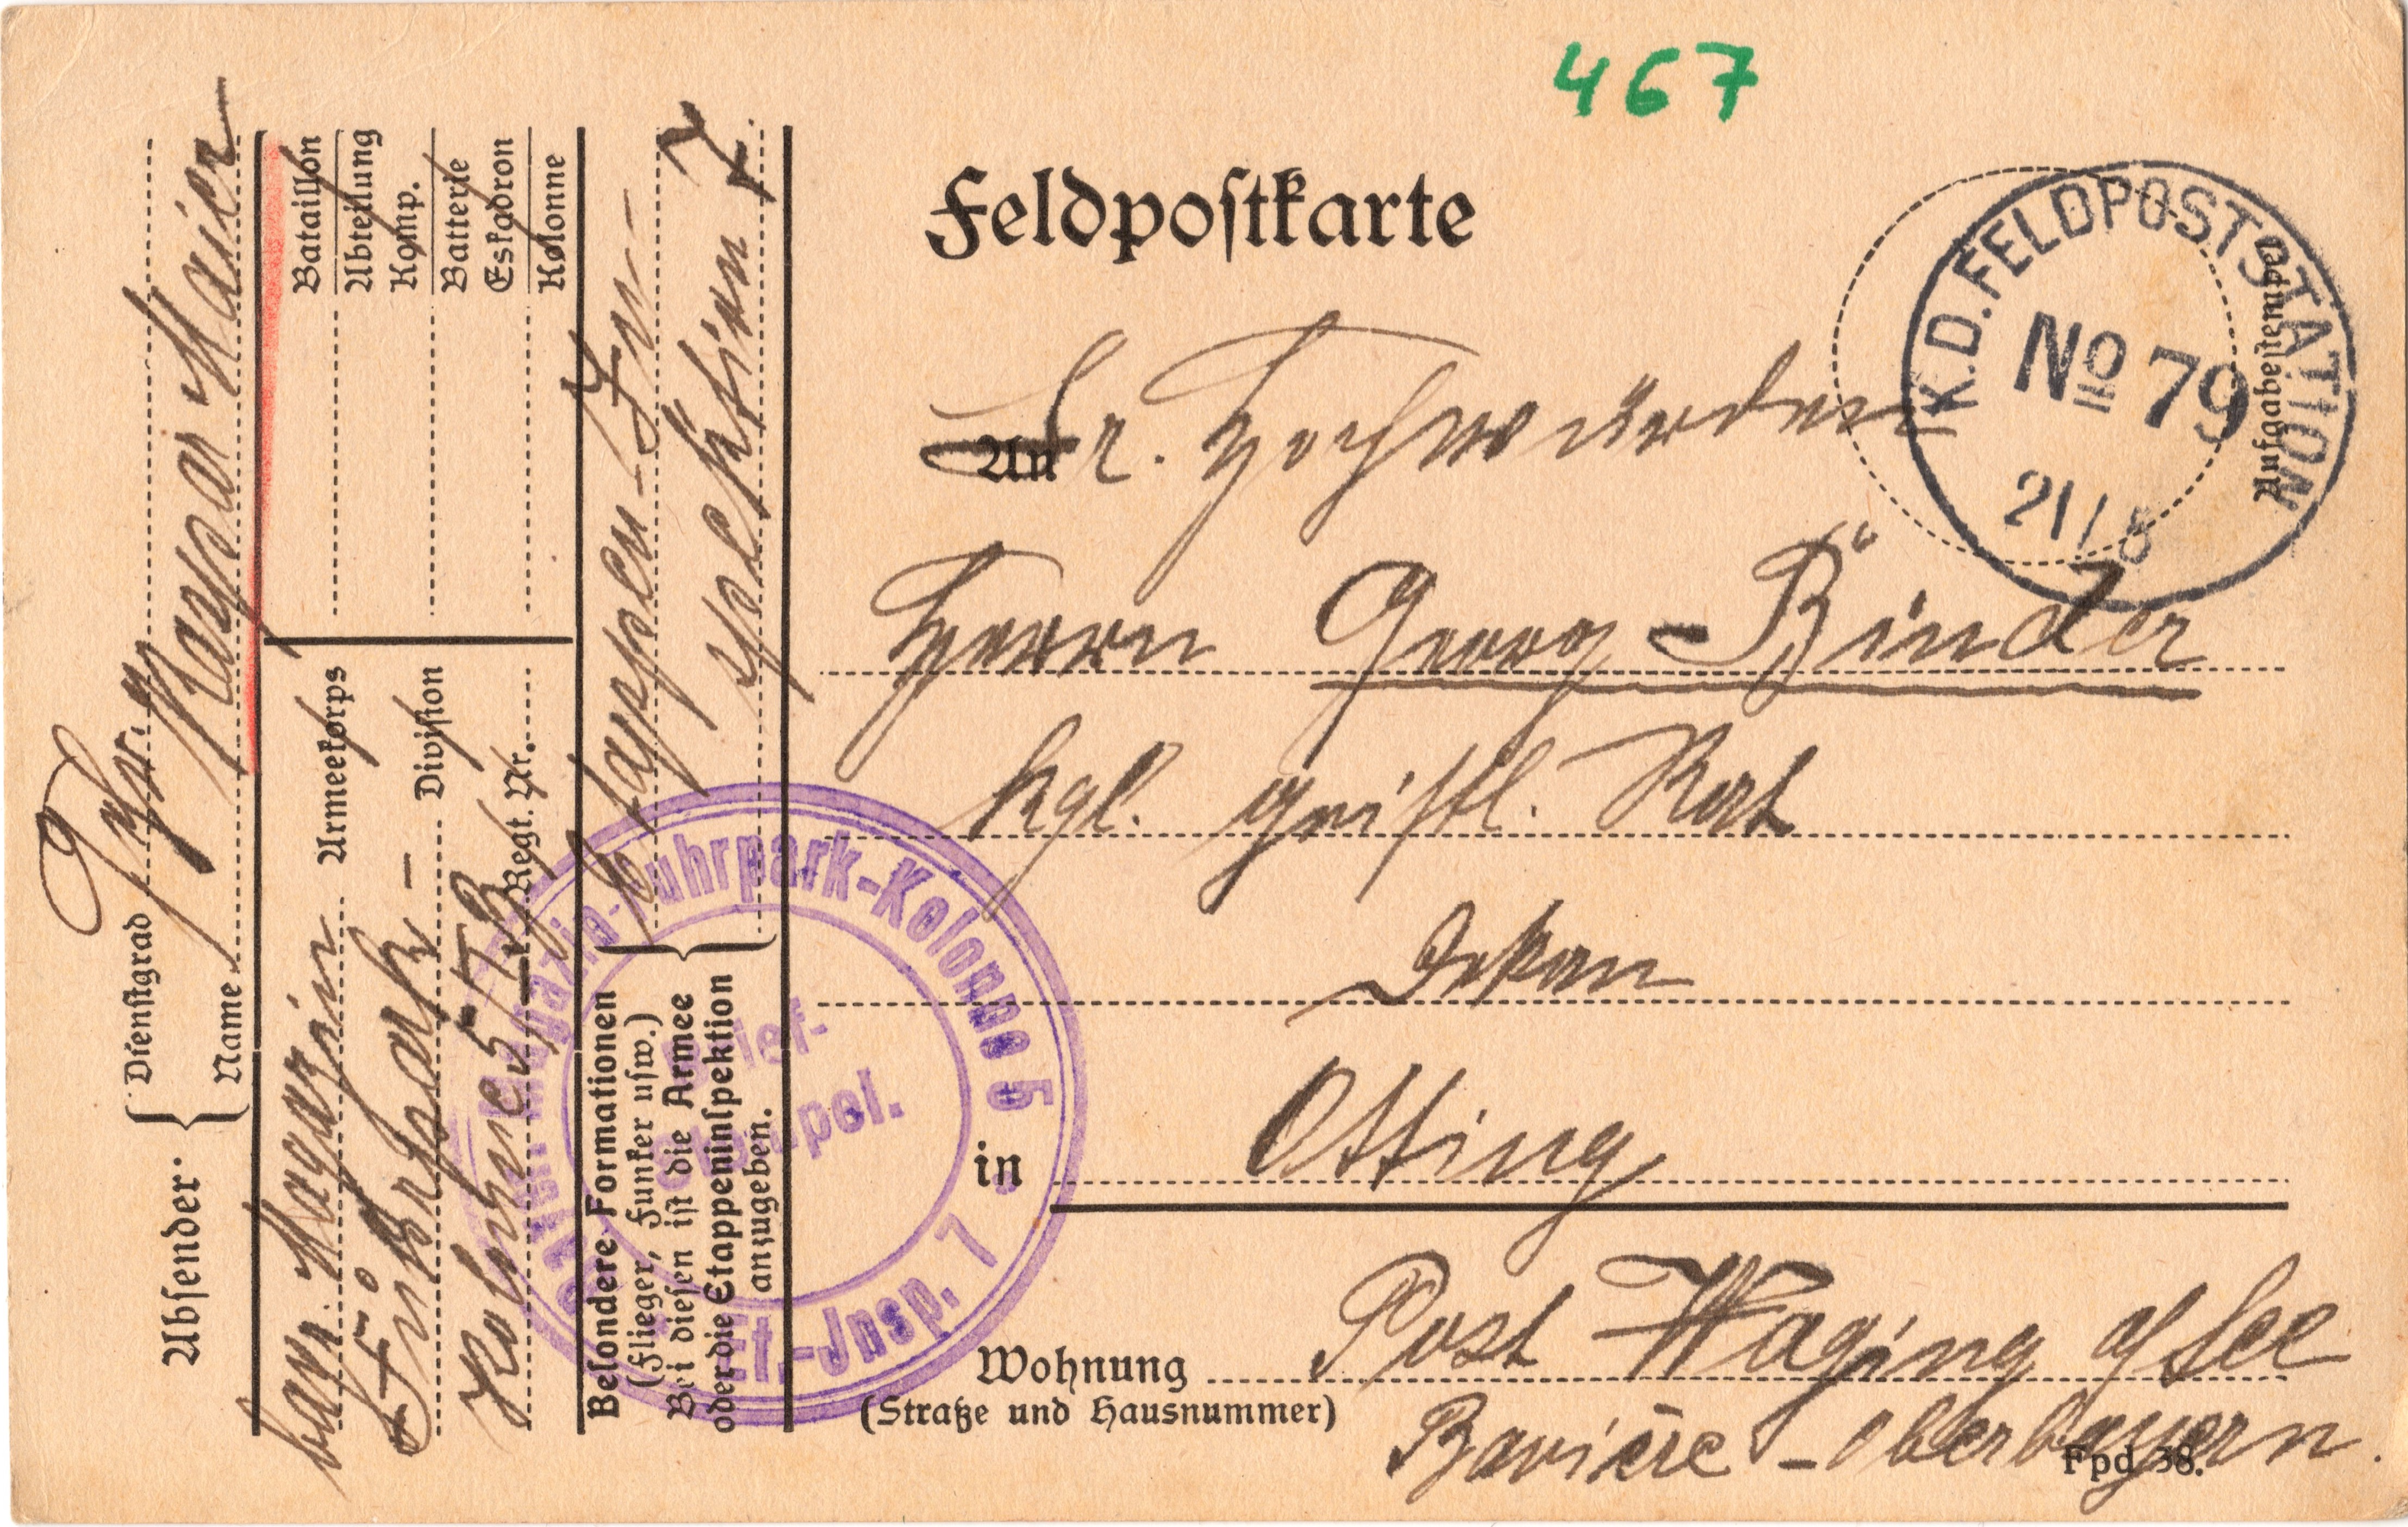 467
Feldpostkarte
K.D. FELDPOSTSTATION
No 79
21/
Aufgabestempel
An Sr. Hochwürden
Herrn Georg Binder
kgl. geistl. Rat
Dekan
in Otting
Wohnung Post Waging a/See
(Straße und Hausnummer)
Bavière – Oberbayern.
Fpd 38.
Absender:
Dienstgrad
Name Kaspar Maier
bayr. Magazin
Fuhrpark-
Kolonne 5/
Armeekorps
Division
Regt. Nr.
Bataillon
Abteilung
Komp.
Batterie
Eskadron
Kolonne
Besondere Formationen
(Flieger, Funker usw.)
Bei diesen ist die Armee
oder die Etappeninspektion
anzugeben.
Etappen-In-
spektion 7.
Magazin-Fuhrpark-Kolonne 5
Et.-Insp. 7